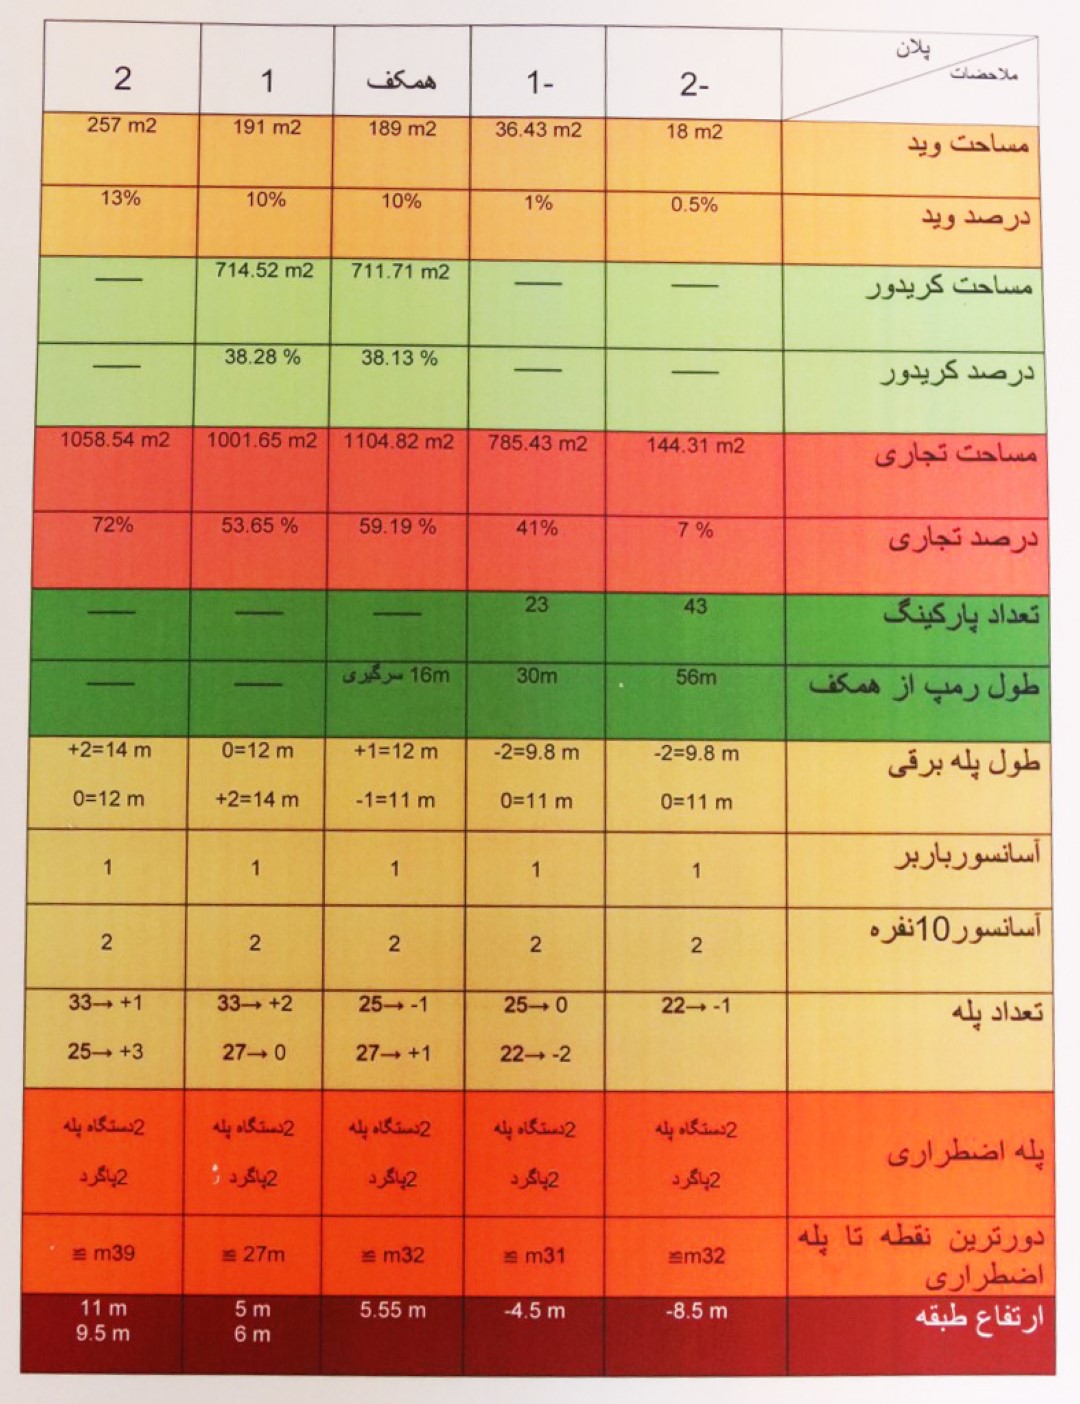 پلان
ملاحضات
-2
-1
همکف
1
2
مساحت وید
18 m2
36.43 m2
189 m2
191 m2
257 m2
درصد وید
0.5%
1%
10%
10%
13%
مساحت کریدور
——
——
711.71 m2
714.52 m2
——
درصد کریدور
——
——
38.13 %
38.28 %
——
مساحت تجاری
144.31 m2
785.43 m2
1104.82 m2
1001.65 m2
1058.54 m2
درصد تجاری
7 %
41%
59.19 %
53.65 %
72%
تعداد پارکینگ
43
23
——
——
——
طول رمپ از همکف
56m
30m
16m سرگیری
——
——
طول پله برقی
-2=9.8 m
0=11 m
-2=9.8 m
0=11 m
+1=12 m
-1=11 m
0=12 m
+2=14 m
+2=14 m
0=12 m
آسانسورباربر
1
1
1
1
1
آسانسور10نفره
2
2
2
2
2
تعداد پله
22→ -1
25→ 0
22→ -2
25→ -1
27→ +1
33→ +2
27→ 0
33→ +1
25→ +3
پله اضطراری
2دستگاه پله
2پاگرد
2دستگاه پله
2پاگرد
2دستگاه پله
2پاگرد
2دستگاه پله
2پاگرد
2دستگاه پله
2پاگرد
دورترین نقطه تا پله
اضطراری
≌m32
≌ m31
≌ m32
≌ 27m
≌ m39
ارتفاع طبقه
-8.5 m
-4.5 m
5.55 m
5 m
6 m
11 m
9.5 m